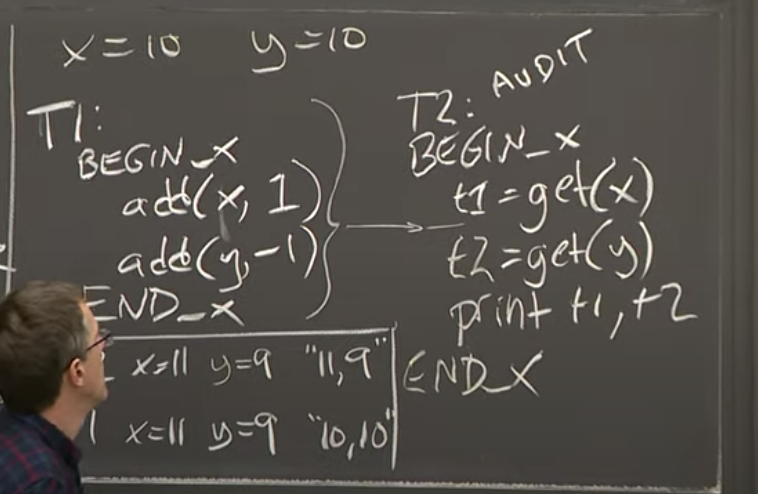 x=10 y=10
T1:
BEGIN_X
add(x, 1)
add(y,-1)
END_X
T2: AUDIT
BEGIN_X
t1=get(x)
t2=get(y)
print t1,t2
END_X
x=11 y=9 "11,9"
x=11 y=9 "10,10"